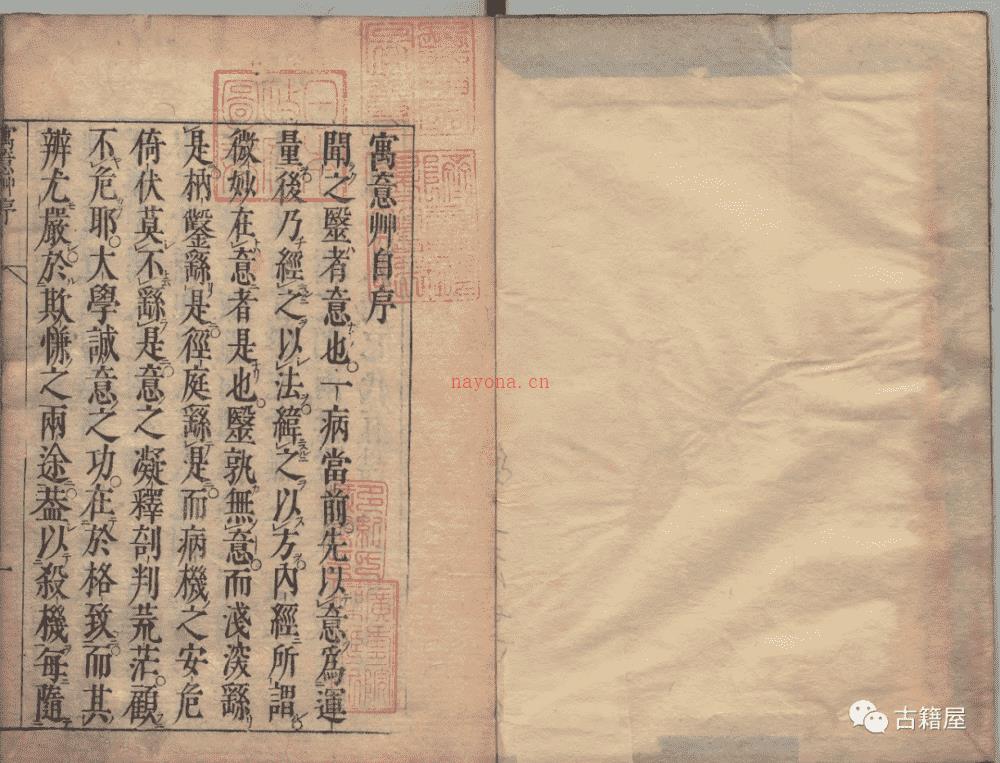 寓意艸自序
聞之毉者意也。一病當前先以意爲運
量後乃經之以法緯之以方內經所謂
微妙在意者是也。毉孰無意。而淺深繇
是柄鑿繇是徑庭繇是而病機之安危
倚伏莫不繇是意之凝釋剖判荒茫。顧
不危耶。大學誠意之功。在於格致而其
辨尤嚴於欺慊之兩途葢以殺機每隨
寓意艸序
一
nayona.cn
古籍屋